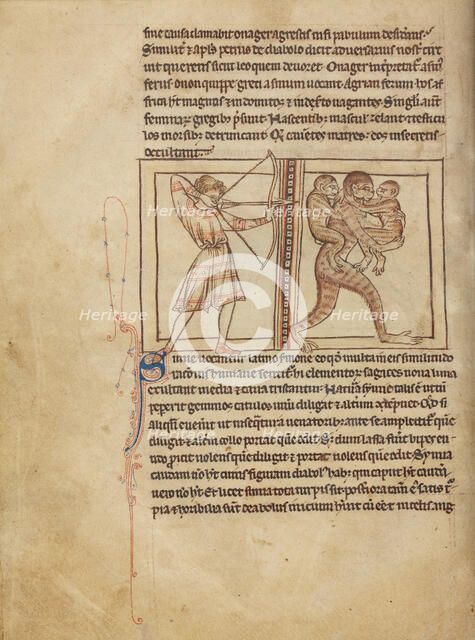 sine causa clamabit onager agrestis nisi pabulum desiderans.
Similiter & apls petrus de diabolo dicit adversarius nost' circuit
querens siccut leo quem devoret. Onager interpretat' asin'
ferus. onon quippe greci asinum vocant. Agrian ferum. hos af
frica ht magnos & indomitos & in deserto vagantes. Singuli aut
feminar' gregib' presunt. Nascentib' mascul' zelant & testicu
los morsib' detruncant. Qd caventes matres. eos in secretis
occultant.
Simie vocantur latino sermone eo qd multa in eis similitudo
rationis humane sentitur. hi elementor' sagaces nova luna
exultant media & cava tristantur. Natura simie talis e ut cum
peperit gemmos catulos unum diligat & alterum contempnet. Qd si
aliqn evenerit ut insequtur a venatoribus. ante se amplectat' quem
diligit & alium collo portat quem odit. Sed dum lassa fuit bipes eun
do proicit volens quem diligit & portat nolens quem odit. Symia
caudam non ht. cuius figuram diabolus hab; qui caput ht caudam
vero non ht. Et licet simia tota turpis sit. posteriora tam ei satis tur
pia & horribilia sunt. Diabolus inicium hunt cum eet in celis. ang
Heritage
Heritage
Heritage
Heritage
Heritage
Heritage
C